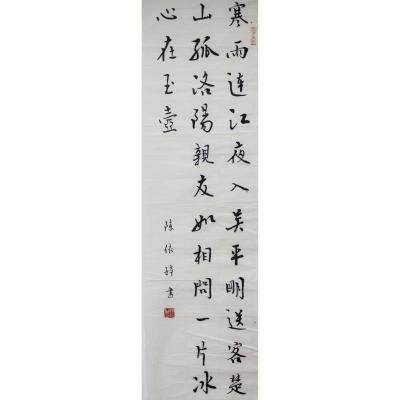 寒雨连江夜入吴平明送客楚
山孤洛陽親友如相問一片冰
心在玉壺
陈依婷書